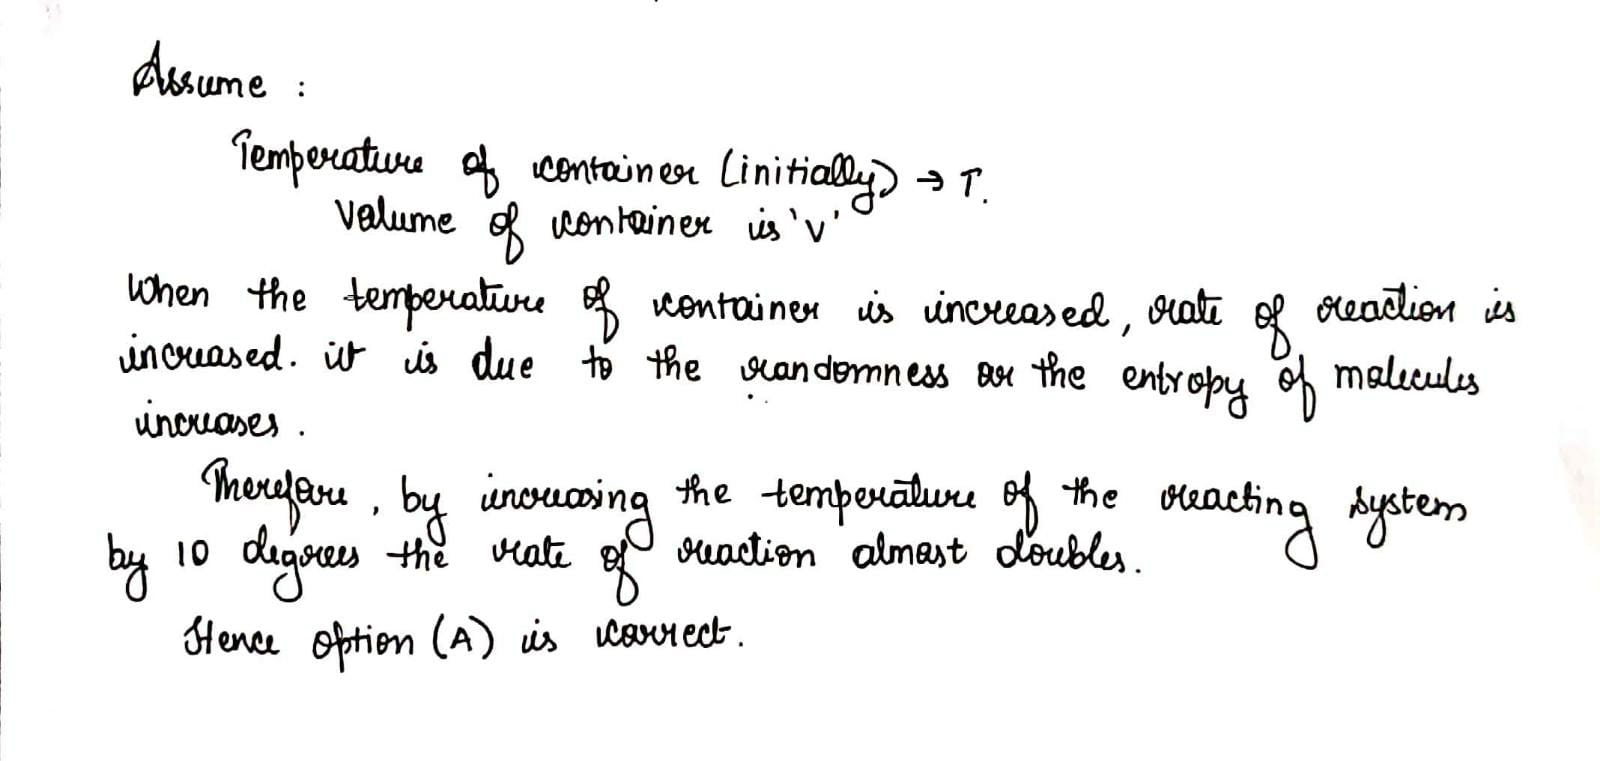 Assume :
Temperature of container (initially) → T.
Volume of container is 'v'
When the temperature of container is increased, rate of reaction is
increased. it is due to the randomness or the entropy of molecules
increases .
Therefore , by increasing the temperature of the reacting system
by 10 degrees the rate of reaction almost doubles.
Hence option (A) is correct.